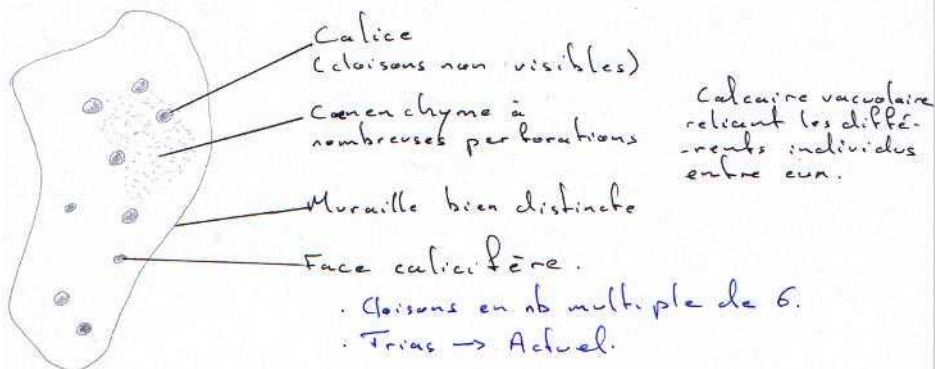 Calice
(cloisons non visibles)
Cœnenchyme à
nombreuses perforations
Calcaire vacuolaire
reliant les diffé-
-rents individus
entre eux.
Muraille bien distincte
Face calicifère.
. Cloisons en nb multiple de 6.
. Trias → Actuel.